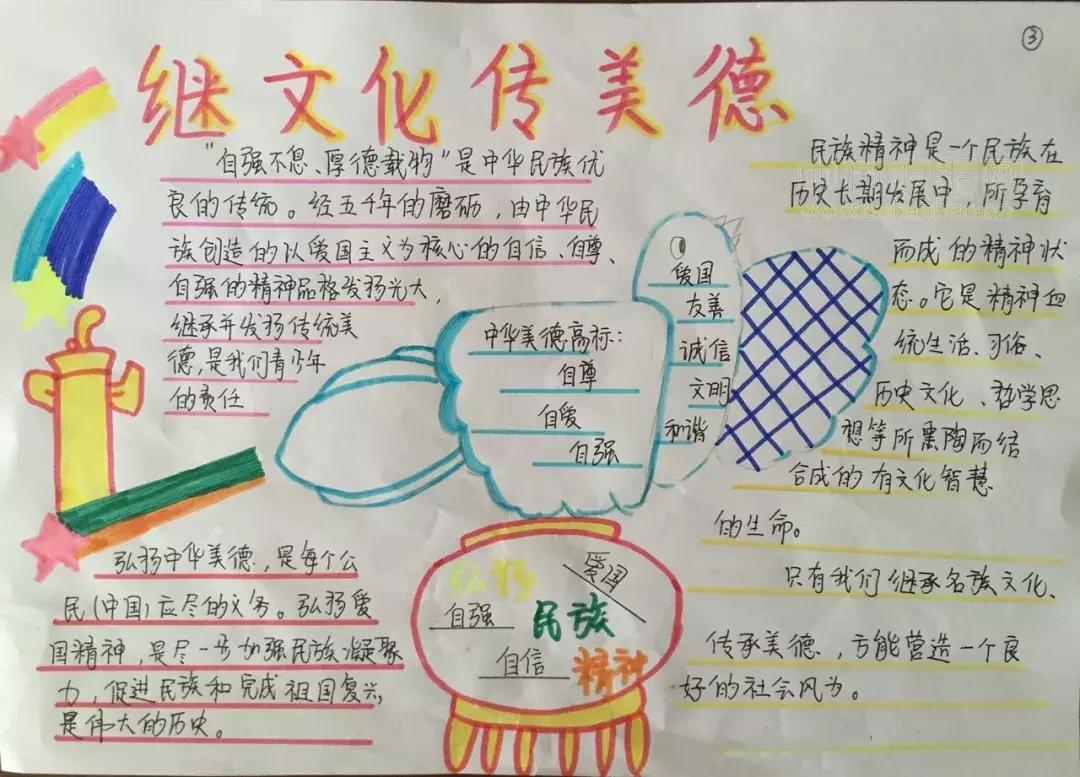 ③
继文化传美德
"自强不息、厚德载物"是中华民族优
良的传统。经五千年的磨砺，由中华民
族创造的以爱国主义为核心的自信、自尊、
自强的精神品格发扬光大，
继承并发扬传统美
德，是我们青少年
的责任
民族精神是一个民族在
历史长期发展中，所孕育
而成的精神状
态。它是精神血
统生活、习俗、
历史文化、哲学思
想等所熏陶而结
合成的有文化智慧
的生命。
只有我们继承名族文化、
传承美德，方能营造一个良
好的社会风为。
中华美德高标：
自尊
自爱
自强
爱国
友善
诚信
文明
和谐
弘扬中华美德，是每个公
民(中国)应尽的义务。弘扬爱
国精神，是尽一步加强民族凝聚
力，促进民族和完成祖国复兴，
是伟大的历史。
弘扬
爱国
自强
民族
自信
精神